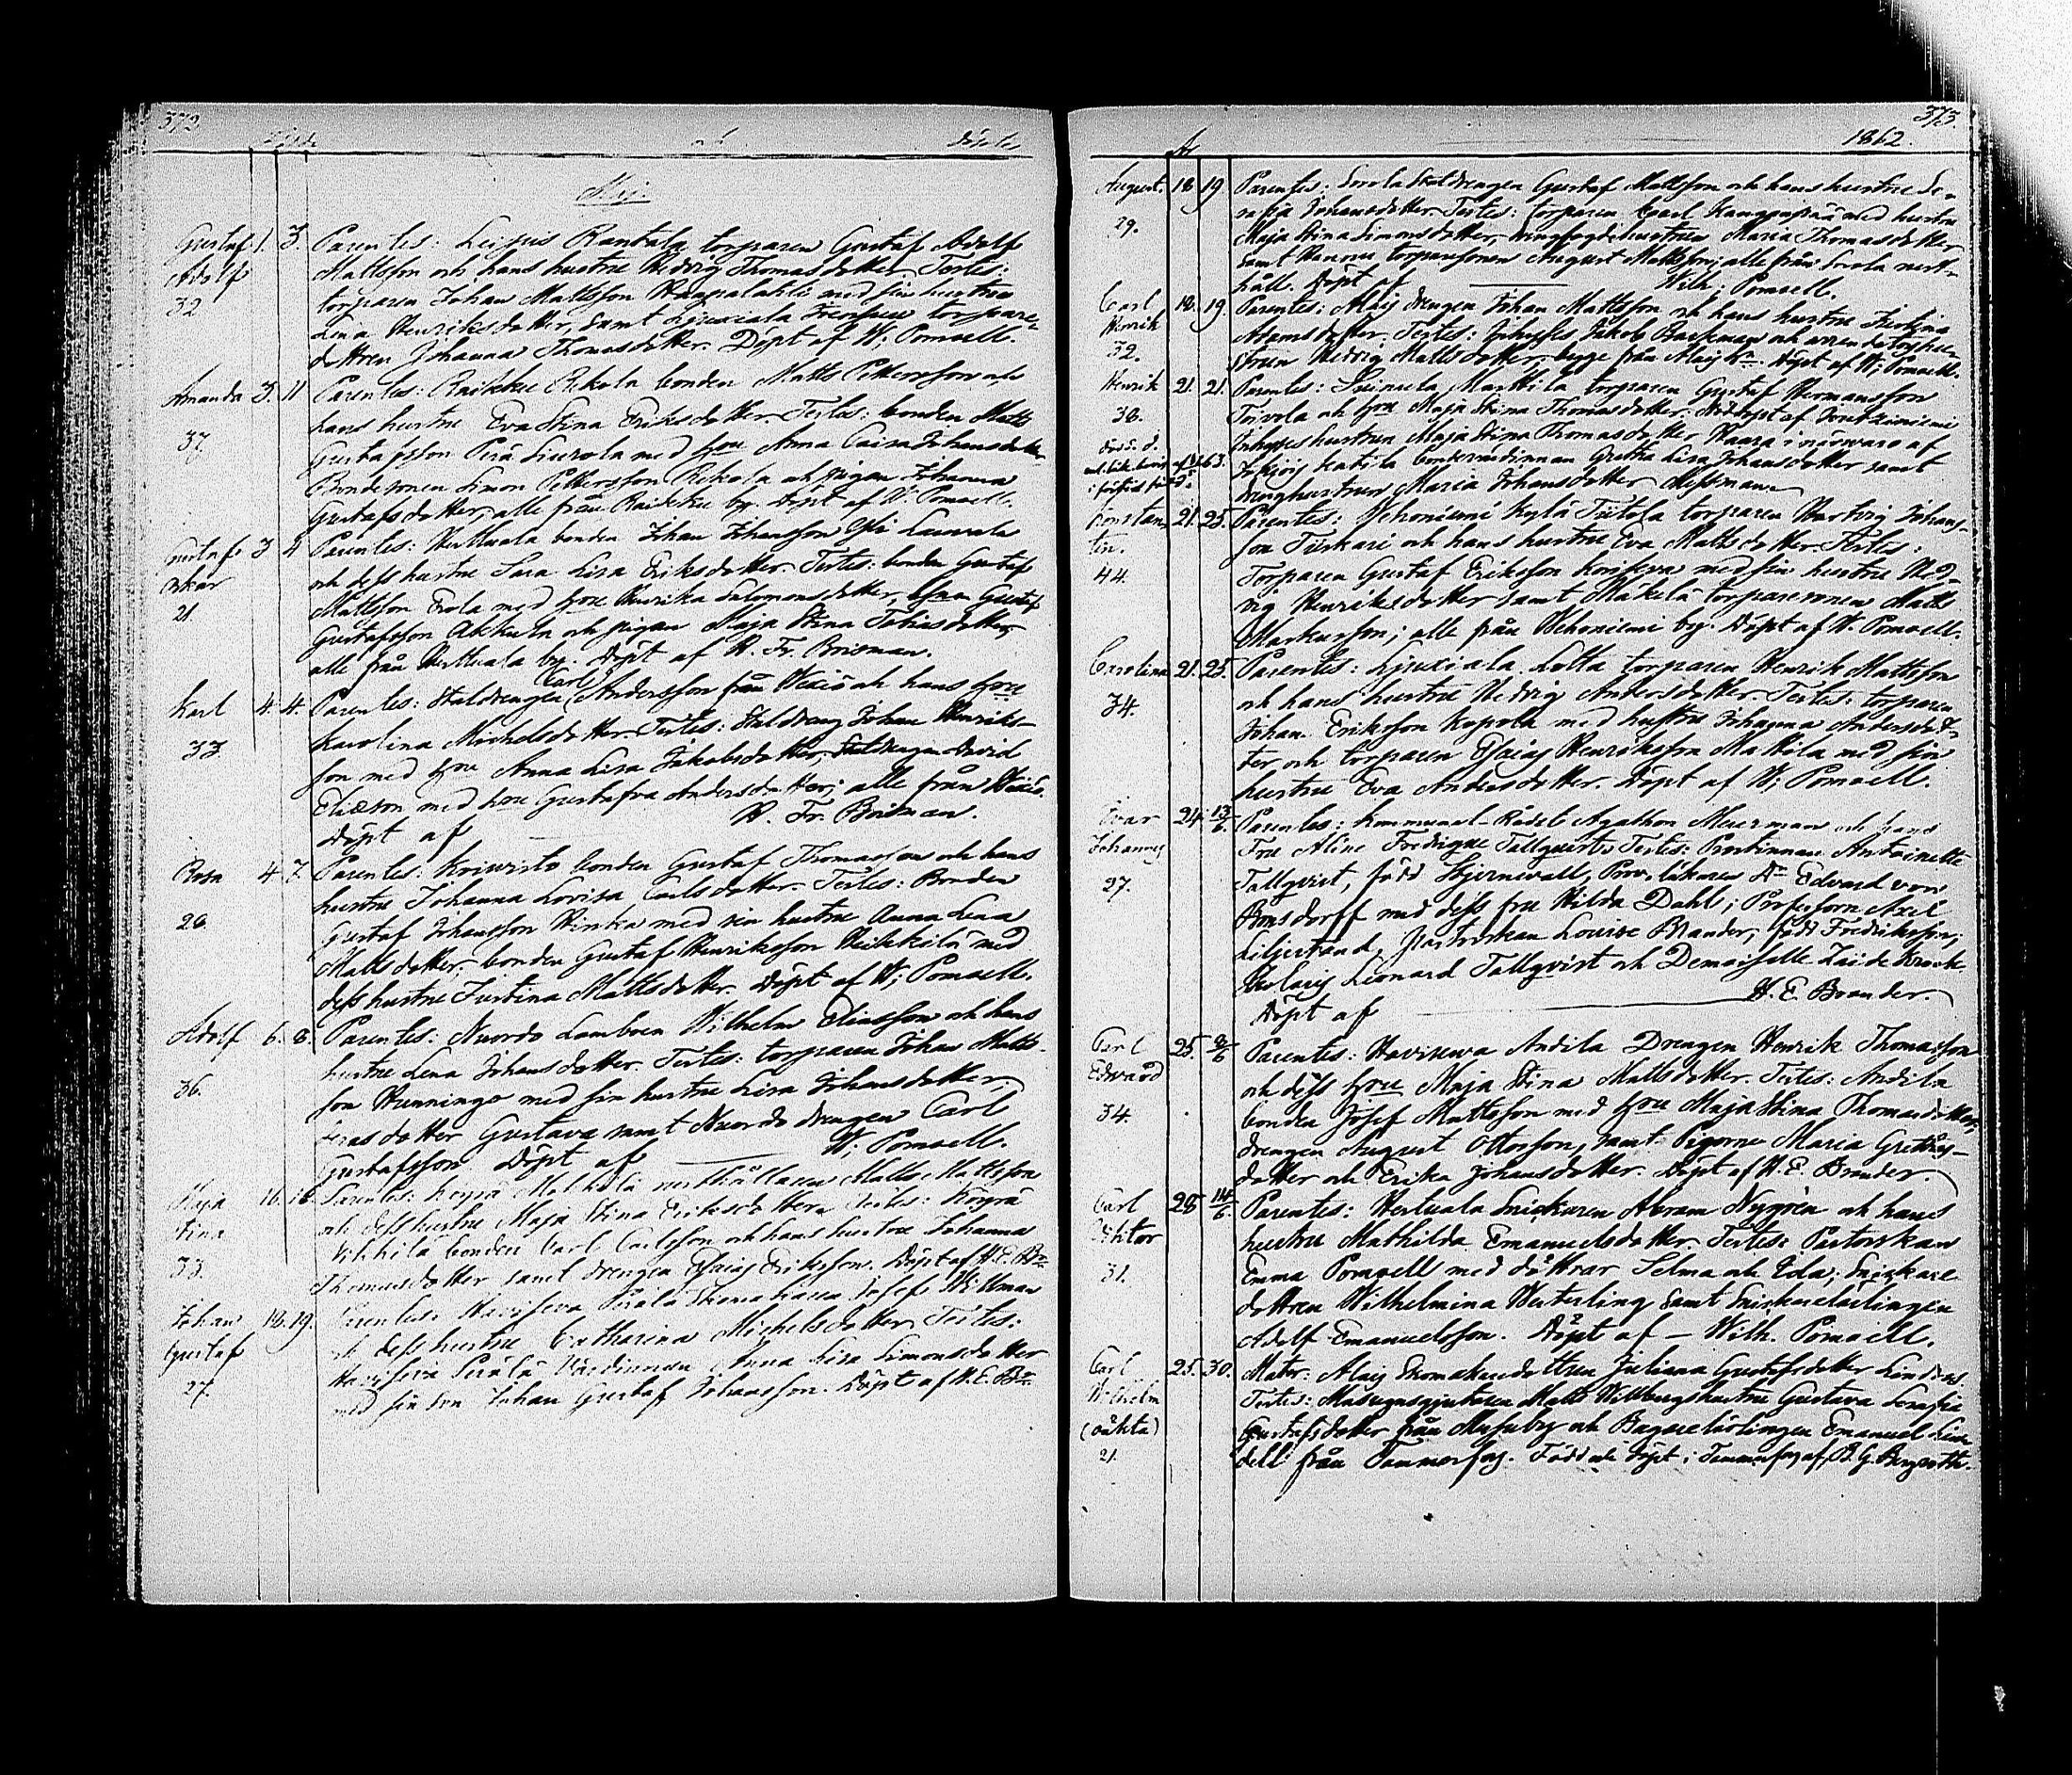 372
Födde och döpte
Maj.
Gustaf 1. 3. Parentes: Leipus Rantala torparen Gustaf Adolf
Adolf Mattsson och hans hustru Hedvig Thomasdotter. Testes:
32 torparen Johan Mattsson Haapalahti med sin hustru
Lina Henriksdotter, samt Ljuxiala torpare-
dottren Johanna Thomasdotter. Döpt af W. Pomoell.
Amanda 3. 11 Parentes: Raikku Rekola bonden Matts Pettersson och
hans hustru Eva Stina Eriksdotter. Testes: bonden Matts
37. Gustafsson Perä Liurola med hru Anna Caisa Johansdotter
Bondesonen Simon Pettersson Rekola och pigan Johanna
Gustafsdotter, alle från Raikku by. Döpt af W. Pomoell.
Gustaf 3 4 Parentes: Herttuala bonden Johan Johansson Yli Laurala
Oskar och dess hustru Sara Lisa Eriksdotter. Testes: bonden Gustaf
21 Mattsson Erola med hru Henrika Salomonsdotter, Gustaf
Gustafsson Akkula och pigan Maja Stina Tobiasdotter,
alle från Herttuala by. Döpt af R. Fr. Brisman.
Karl 4. 4. Parentes: Staldrengen Carl Andersson från Wääksy och hans hru
Karolina Michelsdotter. Testes: Staldreng Johan Henriks-
33. son med hru Anna Lisa Jakobsdotter, David
Eliæson med hru Gustafva Andersdotter; alle från
Döpt af R. Fr. Brisman.
Rosa 4 7. Parentes: Koivisto bonden Gustaf Thomasson och hans
hustru Johanna Lovisa Carlsdotter. Testes: Bonden
28 Gustaf Johansson Hinka med sin hustru Anna Lena
Mattsdotter, bonden Gustaf Henriksson Heikkilä med
dess hustru Justina Mattsdotter. Döpt af W; Pomoell.
Adolf 6. 8. Parentes: Nuordo Lamboen Wilhelm Eliasson och hans
hustru Lena Johansdotter. Testes: torparen Johan Matts-
36. son Hunningo med sin hustru Lisa Johansdotter,
dotter Gustava samt Nuordo drengen Carl
Gustafsson Döpt af W; Pomoell.
Maja 16. 18. Parentes: Keyrä Malkilä Matts Mattsson
Stina och dess hustru Maja Stina Eriksdotter. Testes: Keyrä
33. Vihkilä bonden Carl Carlsson och hans hustru Johanna
Thomasdotter samt drengen Esaias Eriksson. Döpt af H. E. Br.
Johan 18. 19. Parentes: Haviseva Perälä Josef Willman
Gustaf och dess hustru Catharina Michelsdotter. Testes:
27. Haviseva Perälä värdinnan Anna Lisa Simonsdotter
med sin son Johan Gustaf Johansson. Döpt af H. E. Br.
373.
År 1862.
August. 18 19. Parentes: Sorola Skatdrengen Gustaf Mattsson och hans hustru Se-
29. rafia Johansdotter. Testes: torparen Carl Kangenpää med hustru
Maja Stina Simonsdotter, hustrun Maria Thomasdotter
samt Hannu torparesonen August Mattsson; alle från Sorola rust-
håll. Döpt af Wilh; Pomoell.
Carl 18. 19. Parentes: Alaiß drengen Johan Mattsson och hans hustru Justina
Henrik Adamsdotter. Testes: Inhyses Jakob Backman och
32. Hedvig Mattsdotter, begge från Alaiß by. Döpt af W; Pomoell.
Henrik 21. 21. Parentes: Suinula Marttila torparen Gustaf Hermansson
38. Toivola och hru Maja Stina Thomasdotter. Nöddöpt af
Inhyses hustrun Maja Stina Thomasdotter Haara i närvaro af
Katila bondevärdinnan Gretha Lisa Johansdotter samt
drenghustrun Maria Johansdotter Messman.
Konstan- 21. 25. Parentes: Vehoniemi Kylä Tiitola torparen Hartvig Johans-
tin. son Tiiskari och hans hustru Eva Mattsdotter. Testes:
44. Torparen Gustaf Eriksson Koriseva med sin hustru Hed-
vig Henriksdotter samt Mäkelä torparesonen Matts
Markusson; alle från Vehoniemi by. Döpt af W. Pomoell.
Carolina 21. 25. Parentes: Ljuxiala Lotta torparen Henrik Mattsson
och hans hustru Hedvig Andersdotter. Testes: torparen
34. Johan Eriksson Kupola med hustru Johanna Andersdot-
ter och torparen Esaias Henriksson Mattila med sin
hustru Eva Andersdotter. Döpt af W; Pomoell.
Ivar 24. 13/6. Parentes: Kommunal-Rådet Agathon Meurman och hans
Johannes Fru Aline Fredrique Tallqvist. Testes: Prostinnan Antoinette
27. Tallqvist, född Stjernvall, Prov. läkaren Dr. Edvard von
Bonsdorff med dess fru Hilda Dahl; Professorn Axel
Liljestrand, Pastorskan Louise Brander, född Fredriksson;
Leonard Tallqvist och Demoiselle Zaide Krook
Döpt af H. E. Brander.
Carl 25. 8/6 Parentes: Havisewa Andila Drengen Henrik Thomasson
Edward och dess hru Maja Stina Mattsdotter. Testes: Andila
34. bonden Josef Mattsson med hru Maja Stina Thomasdotter,
drengen August Ottosson, samt Pigorna Maria Grethas-
dotter och Erika Johansdotter. Döpt af H. E. Brander.
Carl 28 14/6. Parentes: Hertuala Snickaren Abram Nygrén och hans
Viktor hustru Mathilda Emanuelsdotter. Testes: Pastorskan
31. Emma Pomoell med döttrar Selma och Ida; Snickare-
dottren Wilhelmina Westerling samt Snickarelärlingen
Adolf Emanuelsson. Döpt af – Wilh. Pomoell.
Carl 25. 30. Mater: Alaiß Skomakaredottren Juliana Gustafsdotter
Wilhelm Testes: Masugnsgjutaren Matts Willbergs hustru Gustava Serafia
(oäkta) Gustafsdotter från Musuby och Bagarelärlingen Emanuel Lin-
21. dell från Tammerfors. Född och döpt i Tammerfors af B. G. Bergroth.